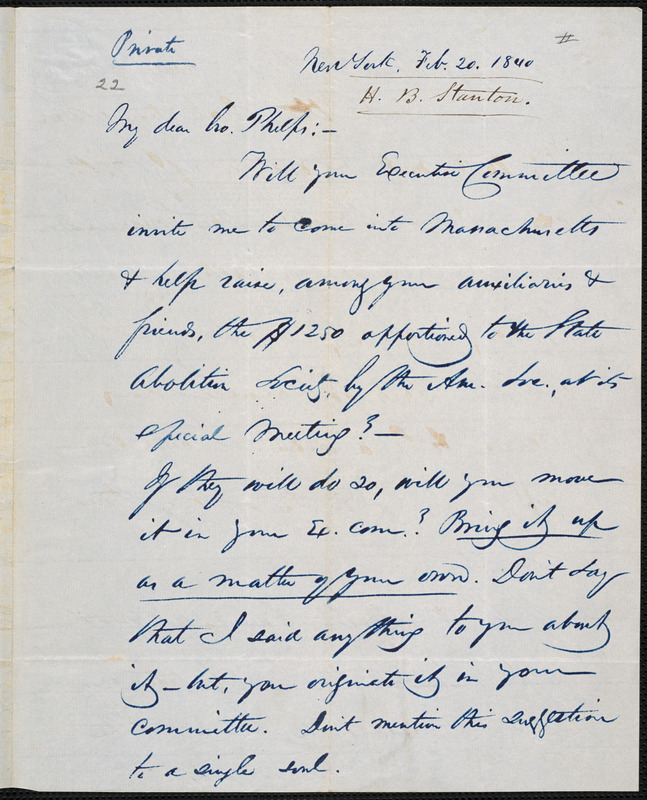 Private
New York, Feb. 20. 1840
#
22
H. B. Stanton.
My dear bro. Phelps:—
Will your Executive Committee
invite me to come into Massachusetts
& help raise, among your auxiliaries &
friends, the $1250 apportioned to the State
Abolition Society, by the Am. Soc., at its
special meeting?—
If they will do so, will you move
it in your Ex. com.? Bring it up
as a matter of your own. Don't say
that I said anything to you about
it—but, you originate it in your
committee. Don't mention this suggestion
to a single soul.